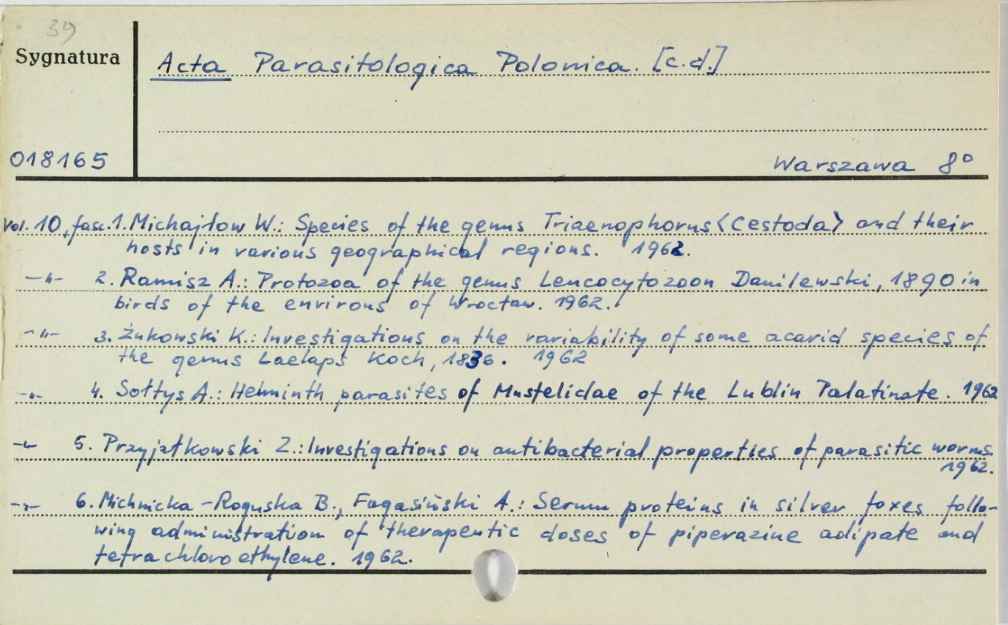 39
Sygnatura
Acta Parasitologica Polonica. [c.d.]
018165
Warszawa 8°
Vol. 10, fasc. 1. Michajłow W.: Species of the genus Triaenophorus <Cestoda> and their
hosts in various geographical regions. 1962.
-"- 2. Ramisz A.: Protozoa of the genus Lencocytozoon Danilewski, 1890 in
birds of the environs of Wrocław. 1962.
-"- 3. Żukowski K.: Investigations on the variability of some acarid species of
the genus Laelaps Koch, 1836. 1962
-"- 4. Sołtys A.: Helminth parasites of Mustelidae of the Lublin Palatinate. 1962
-"- 5. Przyjałkowski Z.: Investigations on antibacterial properties of parasitic worms.
1962.
-"- 6. Michnicka-Roguska B., Fagasiński A.: Serum proteins in silver foxes follo-
wing administration of therapeutic doses of piperazine adipate and
tetrachloroethylene. 1962.